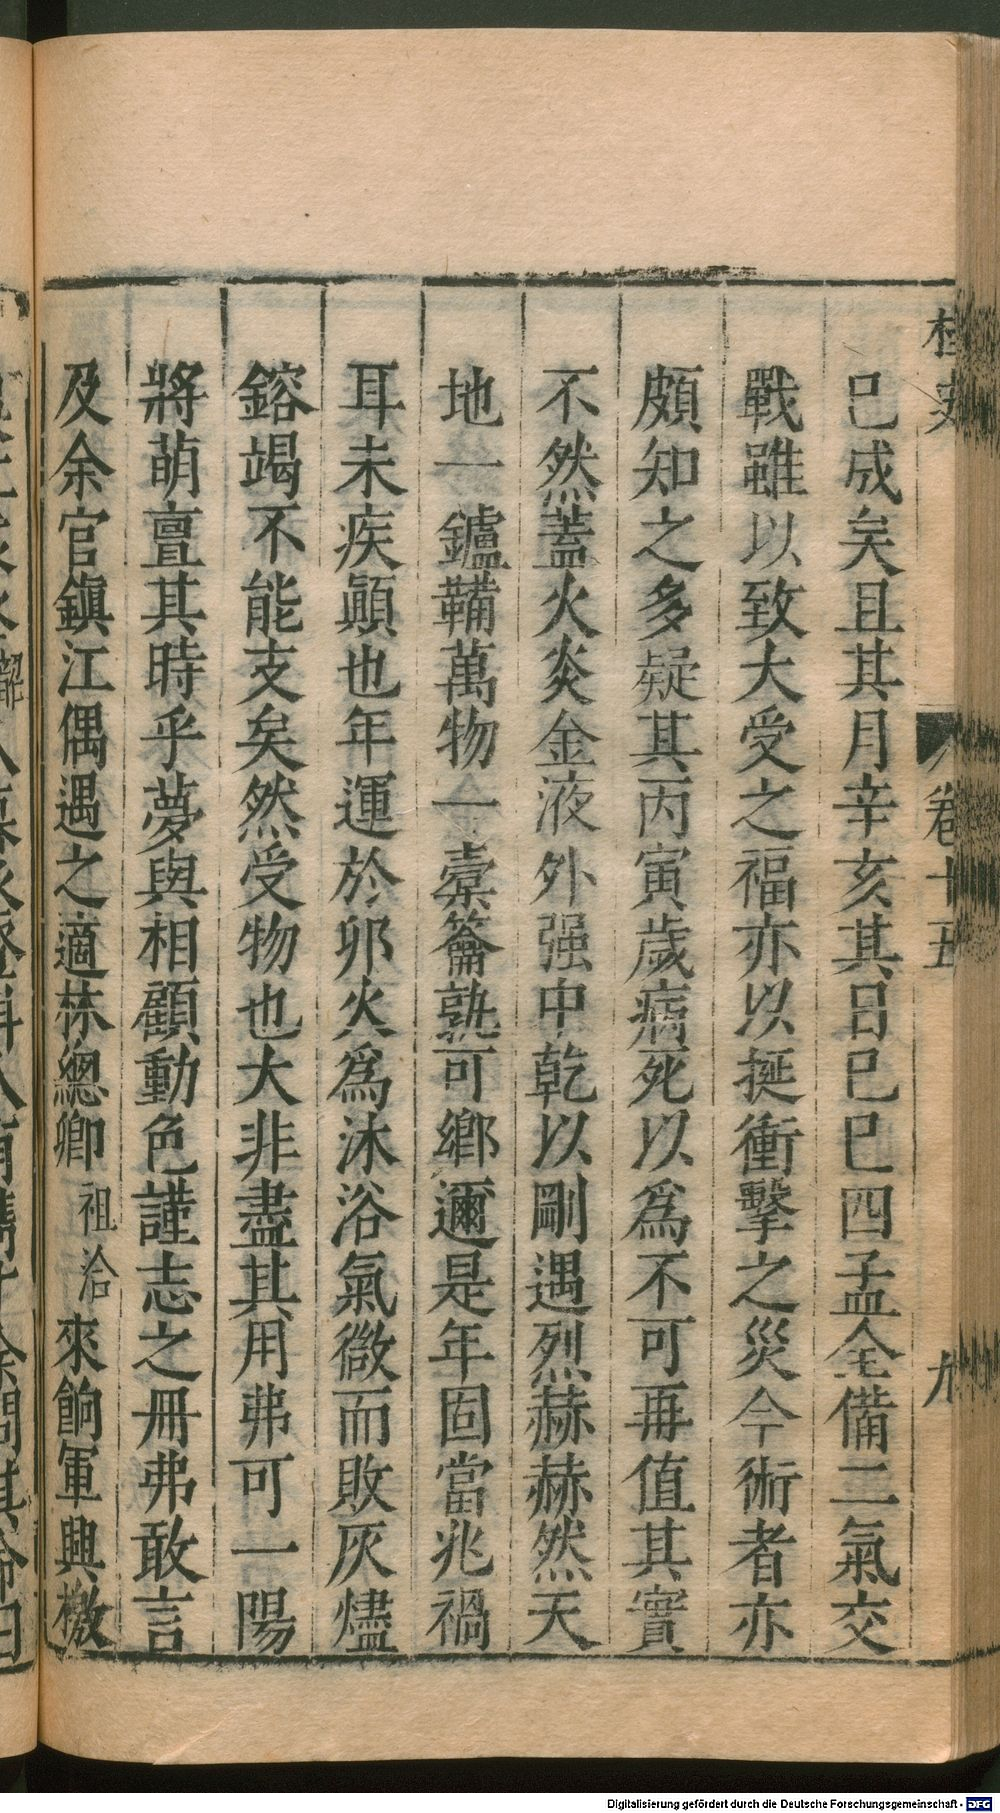 桯史
卷十五
九
已成矣且其月辛亥其日己巳四孟全備二氣交
戰雖以致大受之福亦以挻衝擊之災今術者亦
頗知之多疑其丙寅歲病死以爲不可再值其實
不然蓋火炎金液外强中乾以剛遇烈赫赫然天
地一鑪鞴萬物一橐籥孰可鄉邇是年固當兆禍
耳未疾顚也年運於卯火爲沐浴氣微而敗灰燼
鎔竭不能支矣然受物也大非盡其用弗可一陽
將萌亶其時乎夢與相顧動色謹志之冊弗敢言
及余官鎭江偶遇之適林總卿祖洽來餉軍興檄
Digitalisierung gefördert durch die Deutsche Forschungsgemeinschaft - DFG